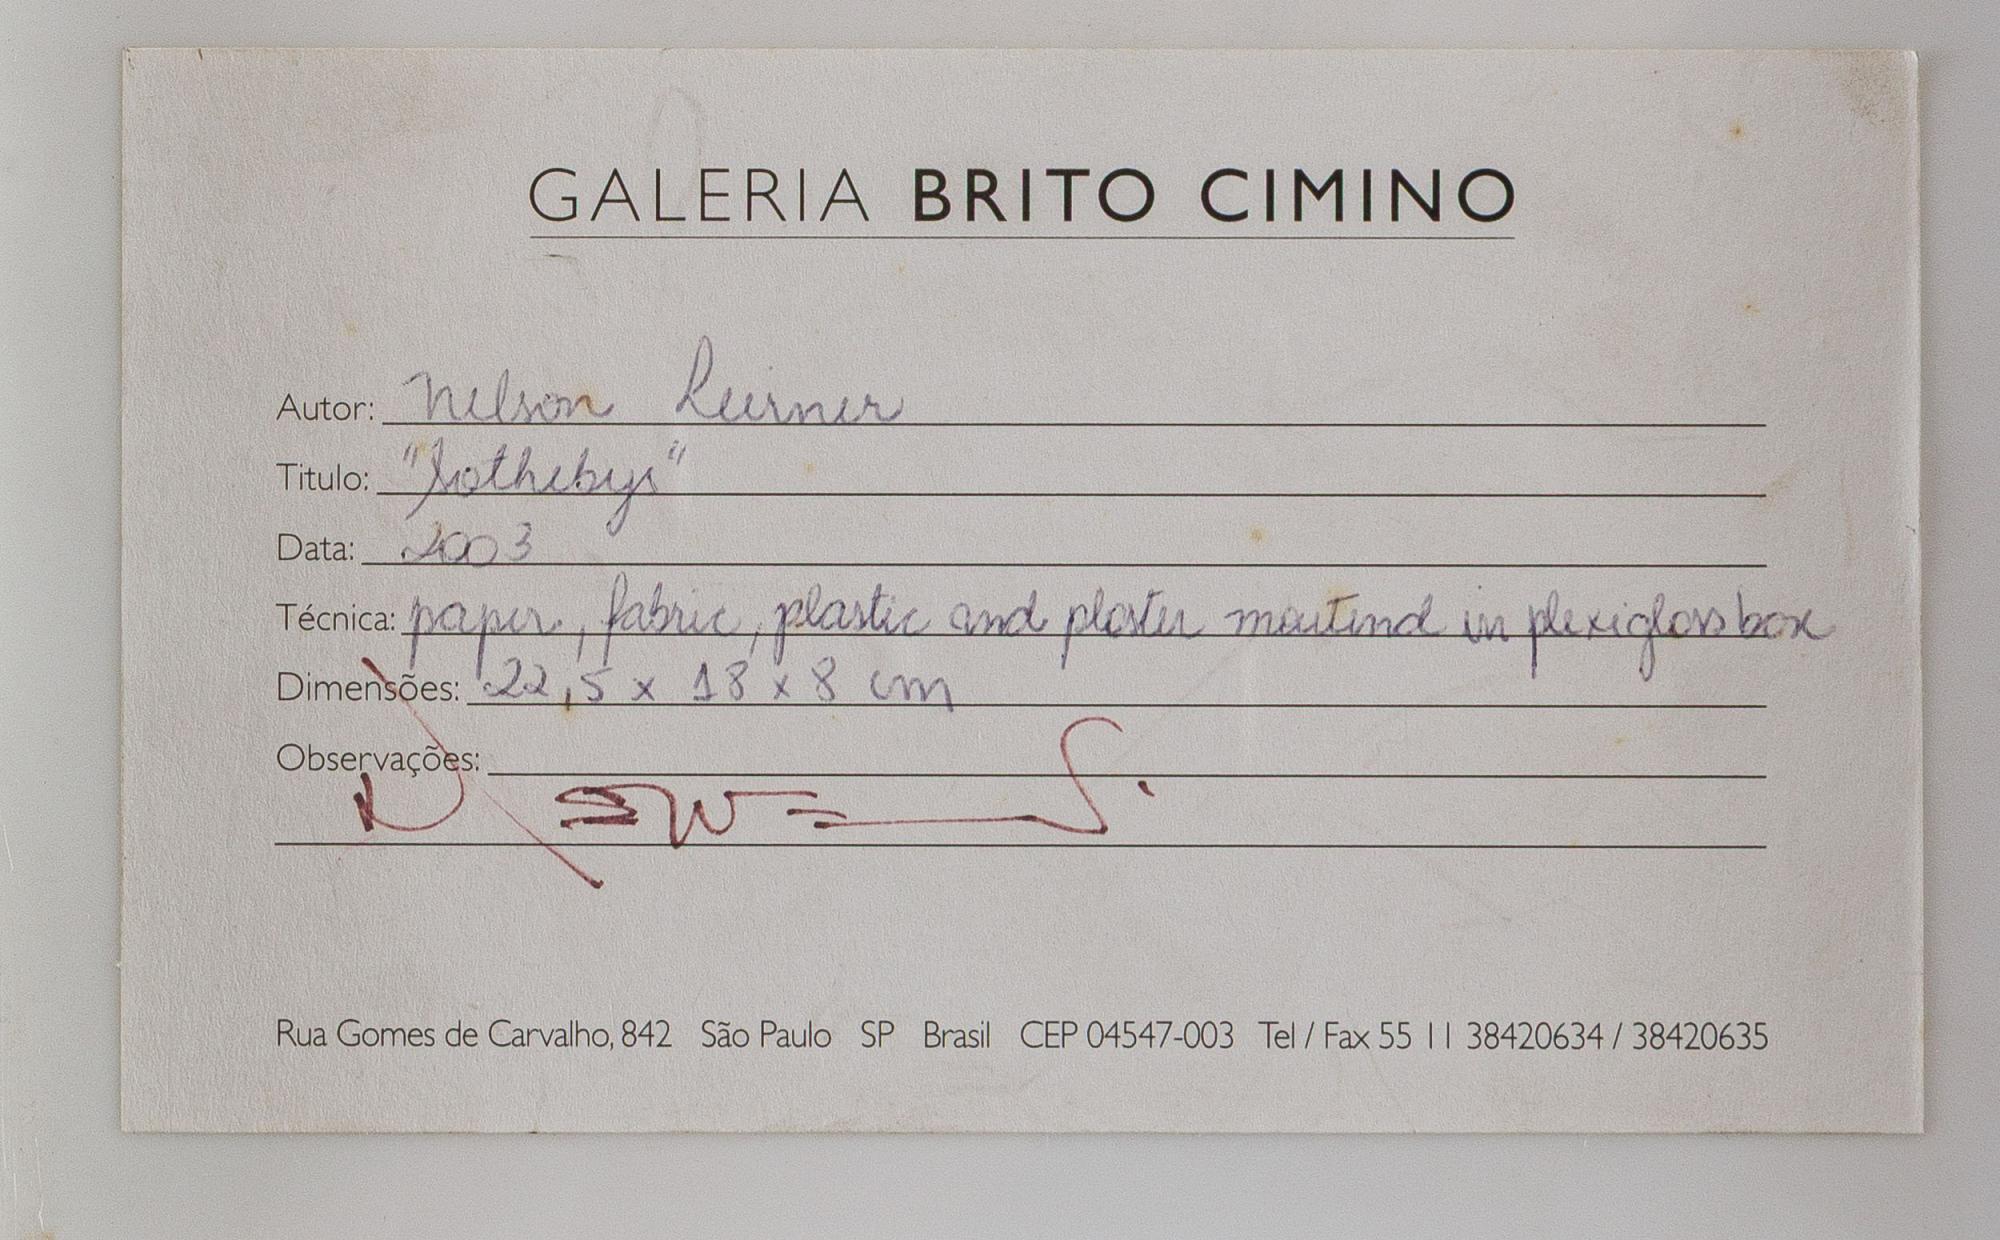 GALERIA BRITO CIMINO
Autor: Nelson Leirner
Titulo: "Sothebys"
Data: 2003
Técnica: paper, fabric, plastic and plaster in plexiglass box
Dimensões: 22,5 x 18 x 8 cm
Observações:
Rua Gomes de Carvalho, 842 São Paulo SP Brasil CEP 04547-003 Tel / Fax 55 11 38420634 / 38420635